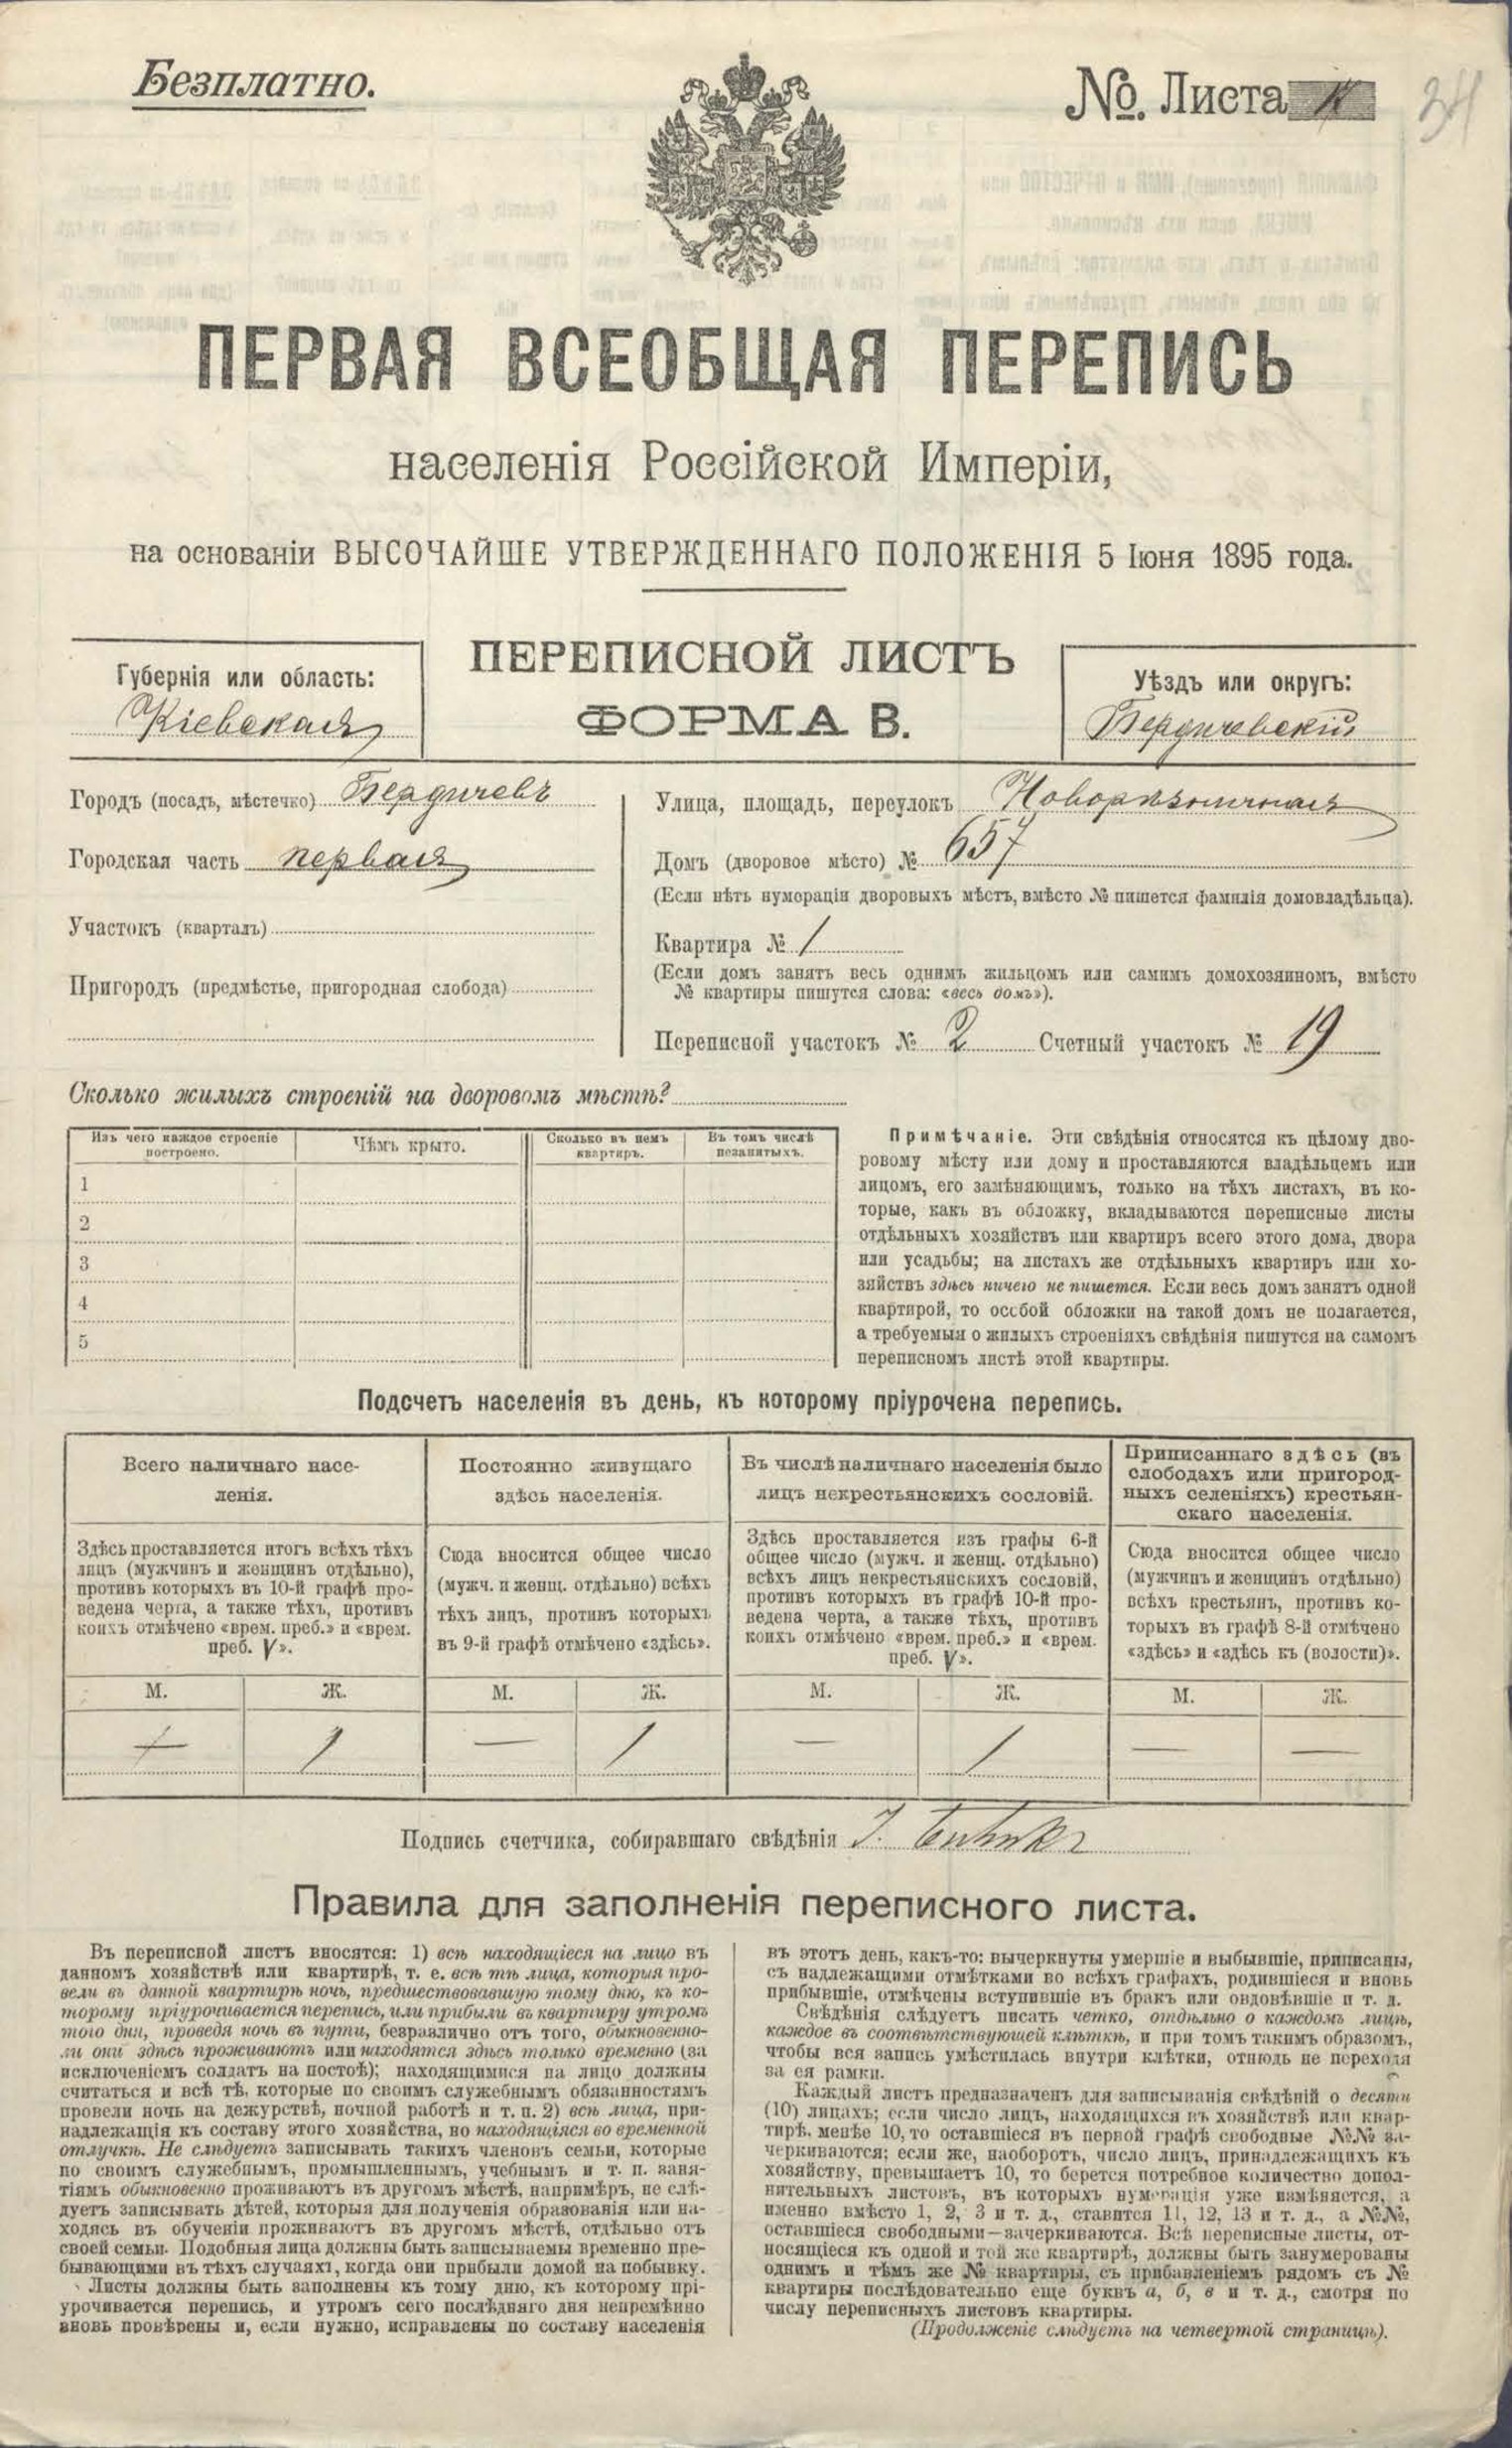 Безплатно.
№ Листа
34
ПЕРВАЯ ВСЕОБЩАЯ ПЕРЕПИСЬ
населенія Россійской Имперіи,
на основаніи ВЫСОЧАЙШЕ УТВЕРЖДЕННАГО ПОЛОЖЕНІЯ 5 Іюня 1895 года.
ПЕРЕПИСНОЙ ЛИСТЪ
ФОРМА В.
Губернія или область:
Кіевская
Уѣздъ или округъ:
Бердичевскій
Городъ (посадъ, мѣстечко) Бердичевъ
Городская часть первая
Участокъ (кварталъ)
Пригородъ (предмѣстье, пригородная слобода)
Улица, площадь, переулокъ Новорѣзничная
Домъ (дворовое мѣсто) № 657
(Если нѣтъ нумераціи дворовыхъ мѣстъ, вмѣсто № пишется фамилія домовладѣльца).
Квартира № 1
(Если домъ занятъ весь однимъ жильцомъ или самимъ домохозяиномъ, вмѣсто
№ квартиры пишутся слова: «весь домъ»).
Переписной участокъ № 2 Счетный участокъ № 19
Сколько жилыхъ строеній на дворовомъ мѣстѣ?
Изъ чего каждое строеніе
построено.
Чѣмъ крыто.
Сколько въ немъ
квартиръ.
Въ томъ числѣ
незанятыхъ.
1
2
3
4
5
Примѣчаніе. Эти свѣдѣнія относятся къ цѣлому дво-
ровому мѣсту или дому и проставляются владѣльцемъ или
лицомъ, его замѣняющимъ, только на тѣхъ листахъ, въ ко-
торые, какъ въ обложку, вкладываются переписные листы
отдѣльныхъ хозяйствъ или квартиръ всего этого дома, двора
или усадьбы; на листахъ же отдѣльныхъ квартиръ или хо-
зяйствъ здѣсь ничего не пишется. Если весь домъ занятъ одной
квартирой, то особой обложки на такой домъ не полагается,
а требуемыя о жилыхъ строеніяхъ свѣдѣнія пишутся на самомъ
переписномъ листѣ этой квартиры.
Подсчетъ населенія въ день, къ которому пріурочена перепись.
Всего наличнаго насе-
ленія.
Постоянно живущаго
здѣсь населенія.
Въ числѣ наличнаго населенія было
лицъ некрестьянскихъ сословій.
Приписаннаго здѣсь (въ
слободахъ или пригород-
ныхъ селеніяхъ) крестьян-
скаго населенія.
Здѣсь проставляется итогъ всѣхъ тѣхъ
лицъ (мужчинъ и женщинъ отдѣльно),
противъ которыхъ въ 10-й графѣ про-
ведена черта, а также тѣхъ, противъ
коихъ отмѣчено «врем. преб.» и «врем.
преб. V».
Сюда вносится общее число
(мужч. и женщ. отдѣльно) всѣхъ
тѣхъ лицъ, противъ которыхъ
въ 9-й графѣ отмѣчено «здѣсь».
Здѣсь проставляется изъ графы 6-й
общее число (мужч. и женщ. отдѣльно)
всѣхъ лицъ некрестьянскихъ сословій,
противъ которыхъ въ графѣ 10-й про-
ведена черта, а также тѣхъ, противъ
коихъ отмѣчено «врем. преб.» и «врем.
преб. V».
Сюда вносится общее число
(мужчинъ и женщинъ отдѣльно)
всѣхъ крестьянъ, противъ ко-
торыхъ въ графѣ 8-й отмѣчено
«здѣсь» и «здѣсь къ (волости)».
М. Ж. М. Ж. М. Ж. М. Ж.
— 1 — 1 — 1 — —
Подпись счетчика, собиравшаго свѣдѣнія
Правила для заполненія переписного листа.
Въ переписной листъ вносятся: 1) всѣ находящіеся на лицо въ
данномъ хозяйствѣ или квартирѣ, т. е. всѣ тѣ лица, которыя про-
вели въ данной квартирѣ ночь, предшествовавшую тому дню, къ ко-
торому пріурочивается перепись, или прибыли въ квартиру утромъ
того дня, проведя ночь въ пути, безразлично отъ того, обыкновенно-
ли они здѣсь проживаютъ или находятся здѣсь только временно (за
исключеніемъ солдатъ на постоѣ); находящимися на лицо должны
считаться и всѣ тѣ, которые по своимъ служебнымъ обязанностямъ
провели ночь на дежурствѣ, ночной работѣ и т. п. 2) всѣ лица, при-
надлежащія къ составу этого хозяйства, но находящіяся во временной
отлучкѣ. Не слѣдуетъ записывать такихъ членовъ семьи, которые
по своимъ служебнымъ, промышленнымъ, учебнымъ и т. п. заня-
тіямъ обыкновенно проживаютъ въ другомъ мѣстѣ, напримѣръ, не слѣ-
дуетъ записывать дѣтей, которыя для полученія образованія или на-
ходясь въ обученіи проживаютъ въ другомъ мѣстѣ, отдѣльно отъ
своей семьи. Подобныя лица должны быть записываемы временно пре-
бывающими въ тѣхъ случаяхъ, когда они прибыли домой на побывку.
Листы должны быть заполнены къ тому дню, къ которому прі-
урочивается перепись, и утромъ сего послѣдняго дня непремѣнно
вновь провѣрены и, если нужно, исправлены по составу населенія
въ этотъ день, какъ-то: вычеркнуты умершіе и выбывшіе, приписаны,
съ надлежащими отмѣтками во всѣхъ графахъ, родившіеся и вновь
прибывшіе, отмѣчены вступившіе въ бракъ или овдовѣвшіе и т. д.
Свѣдѣнія слѣдуетъ писать четко, отдѣльно о каждомъ лицѣ,
каждое въ соотвѣтствующей клѣткѣ, и при томъ такимъ образомъ,
чтобы вся запись умѣстилась внутри клѣтки, отнюдь не переходя
за ея рамки.
Каждый листъ предназначенъ для записыванія свѣдѣній о десяти
(10) лицахъ; если число лицъ, находящихся въ хозяйствѣ или квар-
тирѣ, менѣе 10, то оставшіеся въ первой графѣ свободные №№ за-
черкиваются; если же, наоборотъ, число лицъ, принадлежащихъ къ
хозяйству, превышаетъ 10, то берется потребное количество допол-
нительныхъ листовъ, въ которыхъ нумерація уже измѣняется, а
именно вмѣсто 1, 2, 3 и т. д., ставится 11, 12, 13 и т. д., а №№,
оставшіеся свободными—зачеркиваются. Всѣ переписные листы, от-
носящіеся къ одной и той же квартирѣ, должны быть занумерованы
однимъ и тѣмъ же № квартиры, съ прибавленіемъ рядомъ съ №
квартиры послѣдовательно еще буквъ а, б, в и т. д., смотря по
числу переписныхъ листовъ квартиры.
(Продолженіе слѣдуетъ на четвертой страницѣ).